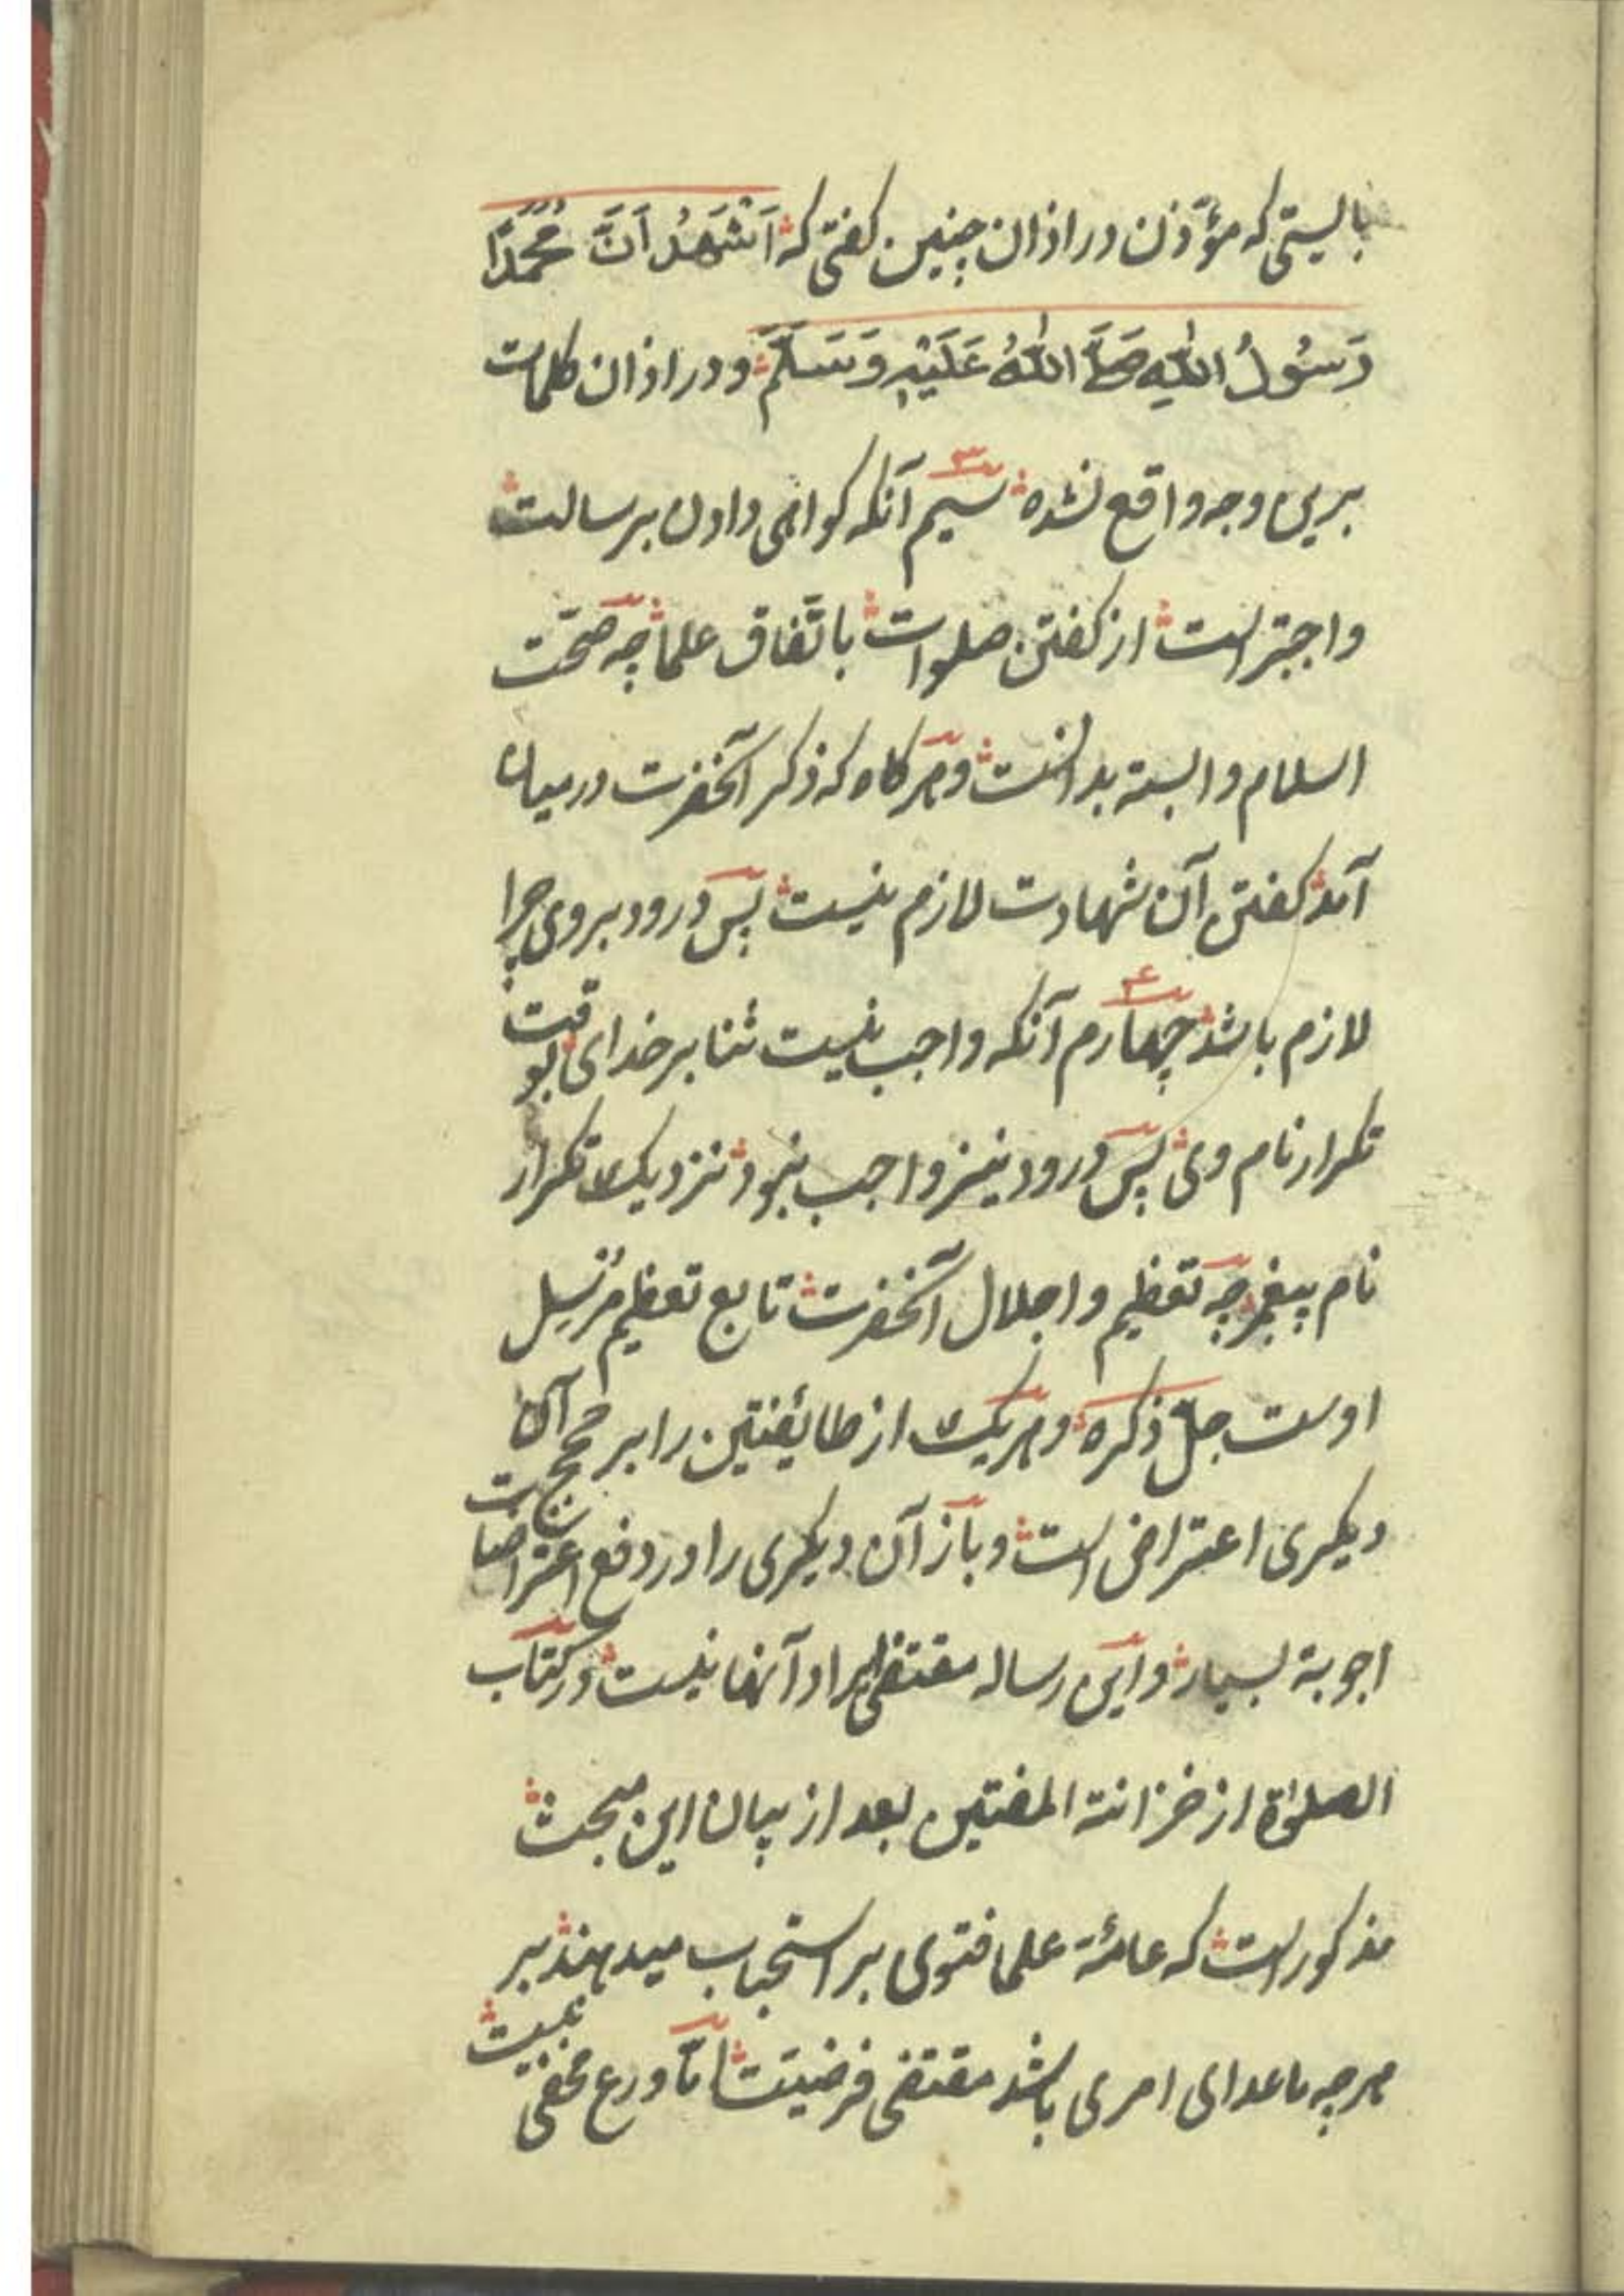 بایستی که مؤذن در اذان چنین کفتی که اَشْهَدُ اَنَّ مُحَمَّدًا
رَسُولُ اللهِ صَلَّی اللهُ عَلَيْهِ وَسَلَّمَ و در اذان کلمات
برین وجه واقع نشده ۳ سیم آنکه کواهی دادن برسالت
واجبتر است از کفتن صلوات باتفاق علما چه صحّت
اسلام وابسته بدانست و هر کاه که ذکر آنحضرت درمیان
آمد کفتن آن شهادت لازم نیست پس درود بر وی چرا
لازم باشد ۴ چهارم آنکه واجب نیست ثنا بر خدای بوقت
تکرار نام وی پس درود نیز واجب نبود نزدیک تکرار
نام پیغمبر چه تعظیم و اجلال آنحضرت تابع تعظیم مُرْسِل
اوست جلّ ذکره و هر یک از طائفتین را بر حجج آن
دیکری اعتراض است و باز آن دیکری را در دفع اعتراضات
اجوبة بسیار و این رساله مقتضی ایراد آنها نیست در کتاب
الصلوٰة از خزانة المفتین بعد از بیان این مبحث
مذکور است که عامّۀ علما فتوی بر استحباب میدهند بر
هرچه ماعدای امری باشد مقتضی فرضیت امّا ورع مخفی نیست